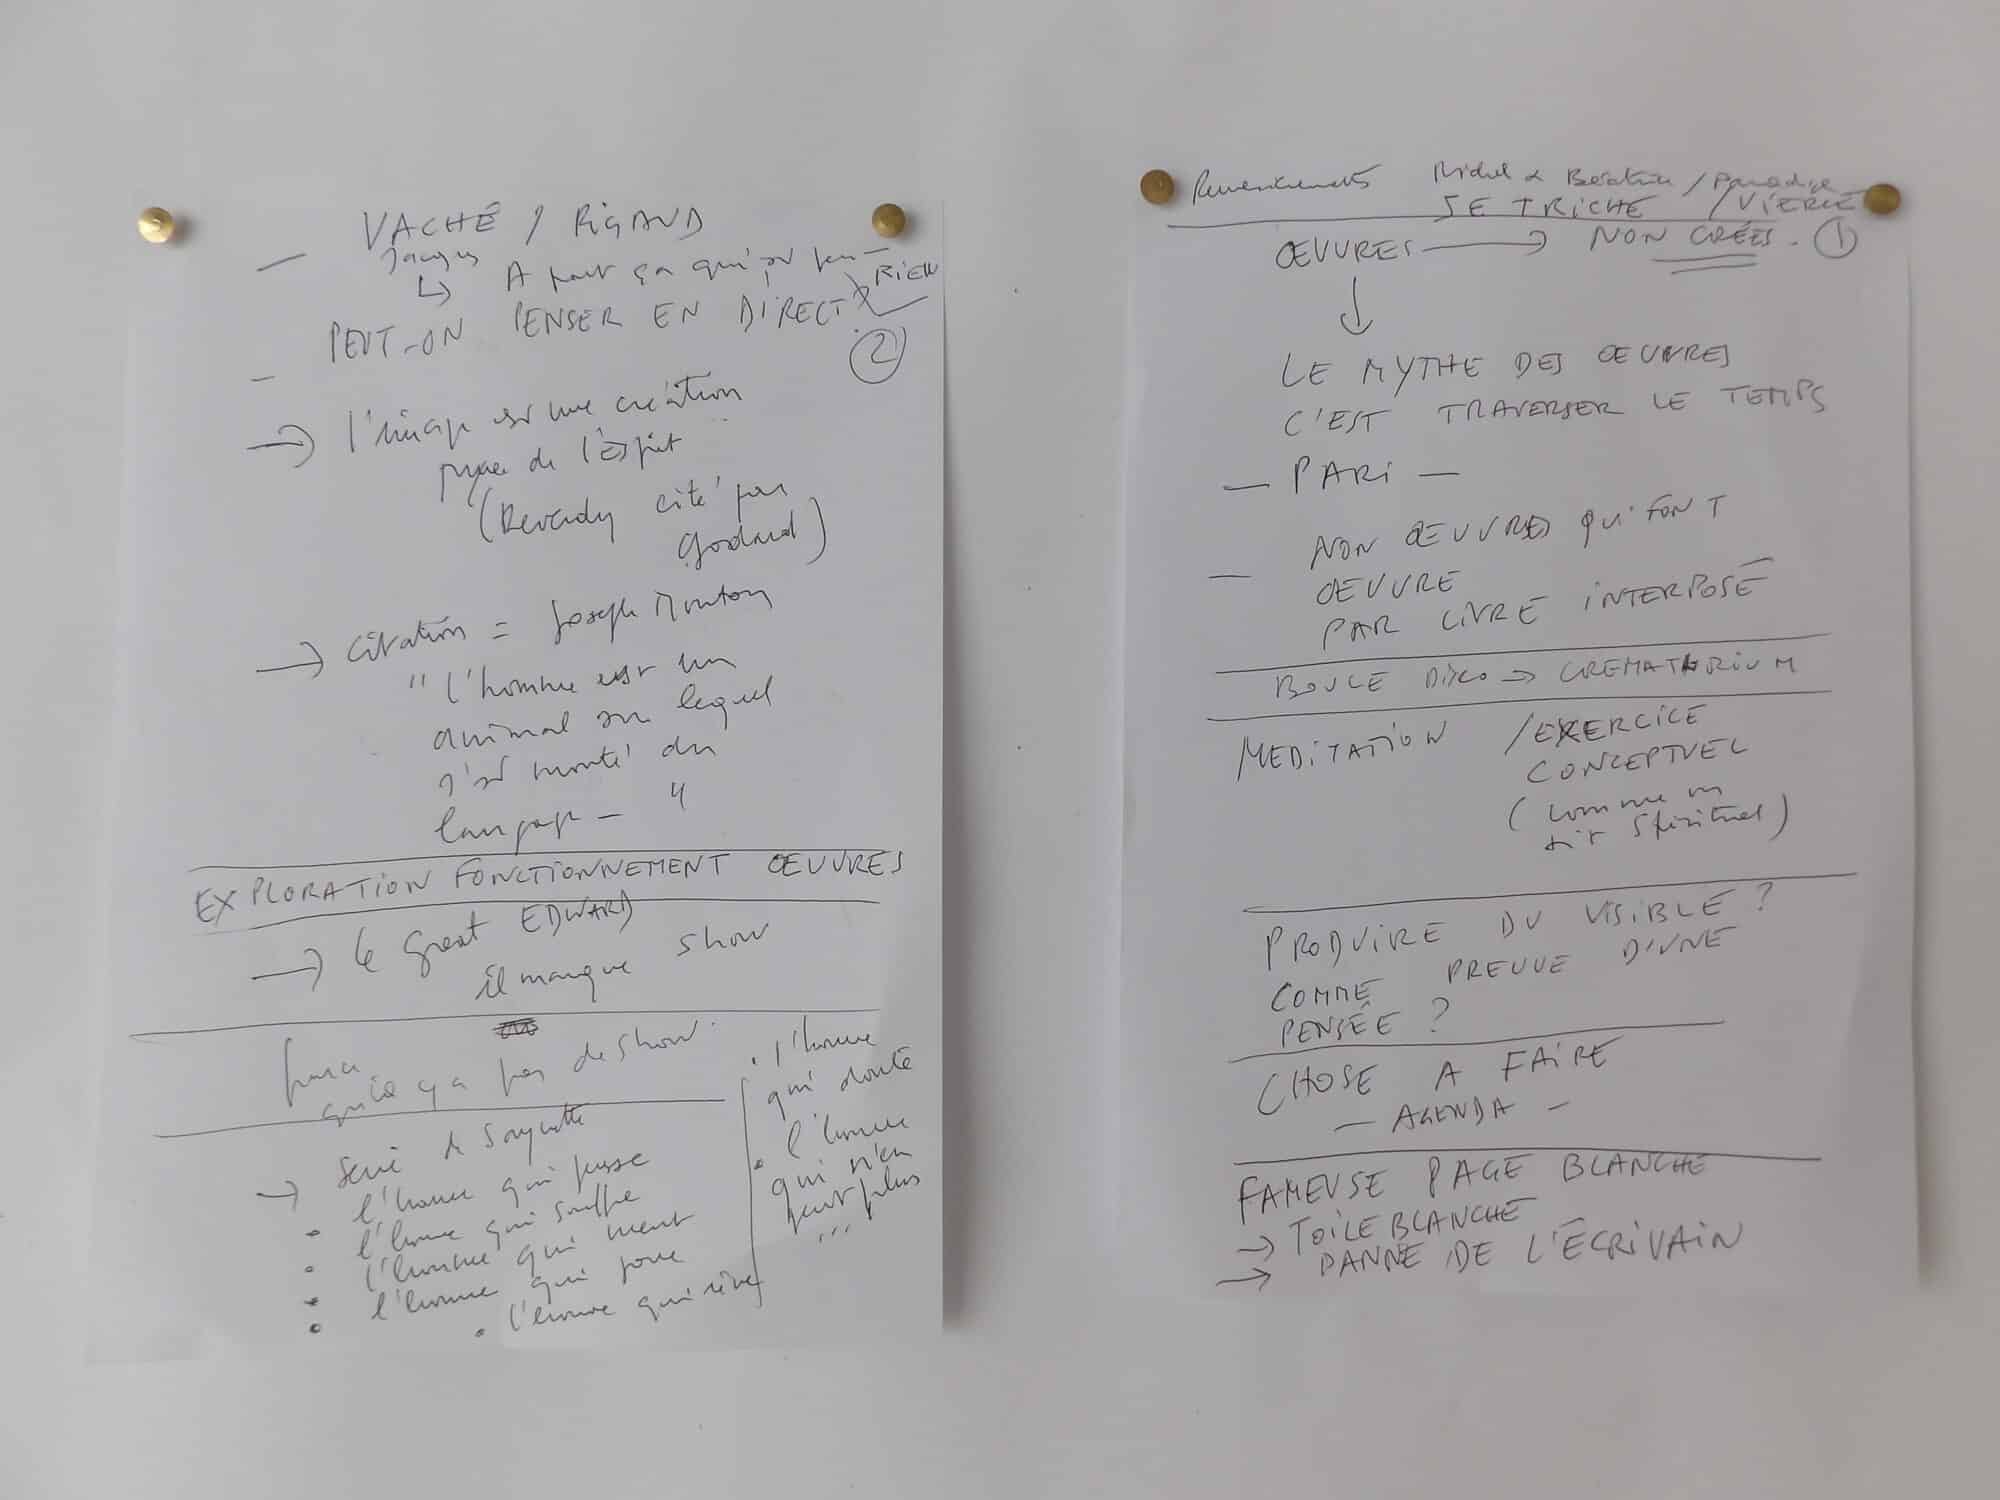 VACHÉ / RIGAUD
Jacques
A part ça qu'
RIEN
PEUT-ON PENSER EN DIRECT ?
2
l'image est une création
pure de l'esprit
(Reverdy cité par
Godard)
Citation = Joseph Mouton
" l'homme est un
animal sur lequel
s'est monté du
langage - "
EXPLORATION FONCTIONNEMENT ŒUVRES
le Great EDWARD
il manque show
parce
qu'il y a pas de show.
Série de
• l'homme qui pense
• l'homme qui souffre
• l'homme qui ment
• l'homme qui joue
• l'homme qui rêve
• l'homme
qui doute
• l'homme
qui n'en
peut plus
...
Remerciements Michel & Béatrice / Paradise
SE TRICHE / VIERGE
ŒUVRES → NON CRÉES. 1
LE MYTHE DES ŒUVRES
C'EST TRAVERSER LE TEMPS
— PARI —
— NON ŒUVRES QUI FONT
ŒUVRE
PAR LIVRE INTERPOSÉ
BOULE DISCO → CREMATORIUM
MEDITATION / EXERCICE
CONCEPTUEL
(comme on
dit spirituel)
PRODUIRE DU VISIBLE ?
COMME PREUVE D'UNE
PENSÉE ?
CHOSE A FAIRE
— AGENDA —
FAMEUSE PAGE BLANCHE
→ TOILE BLANCHE
→ PANNE DE L'ÉCRIVAIN